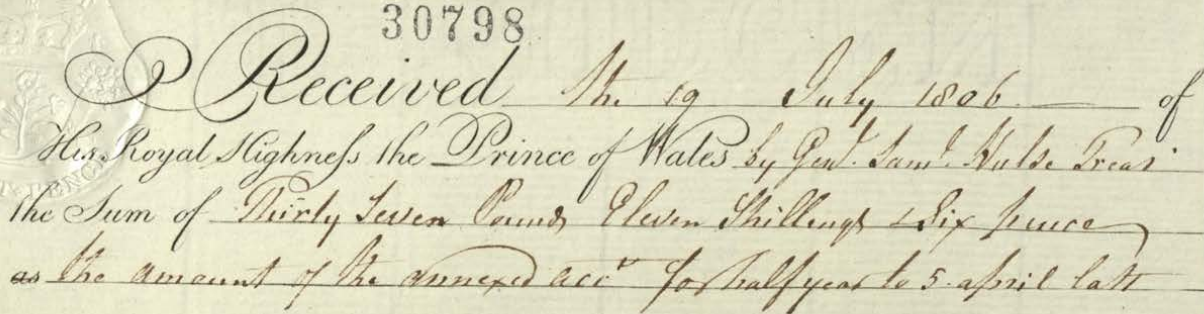 30798
Received the 19 July 1806 of
His Royal Highneſs the Prince of Wales by Genl. Saml. Hulse Treasr
the Sum of Thirty Seven Pounds Eleven Shillings & Six pence
as the amount of the annexed acct for half year to 5 april last